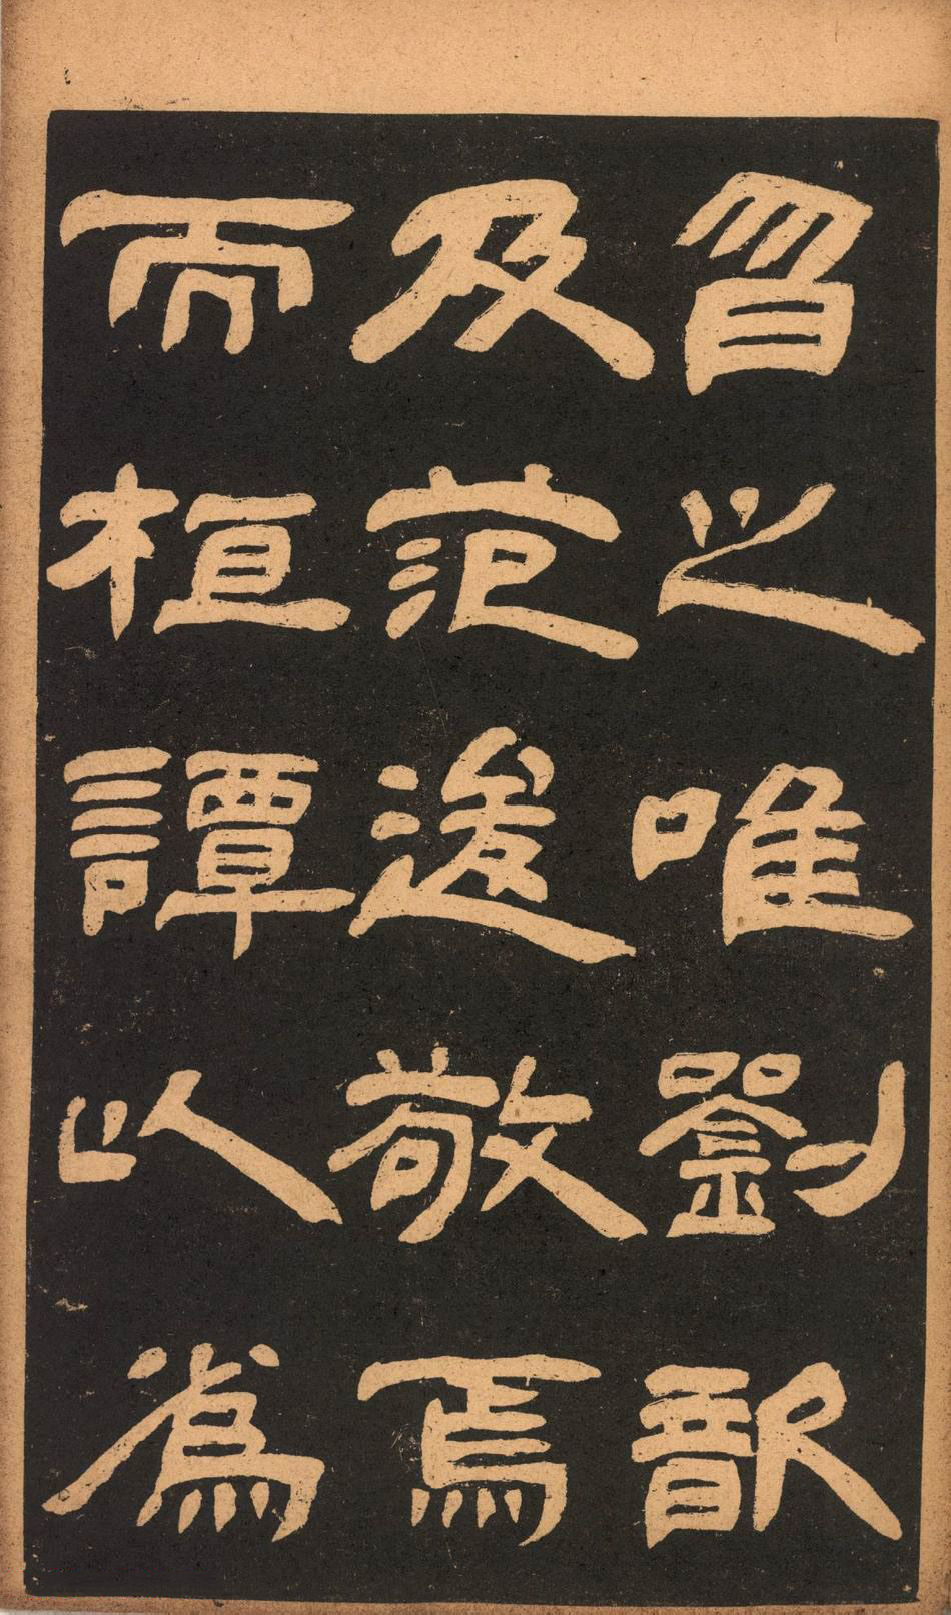 曶之唯劉歆
及范逡敬焉
而桓譚以為